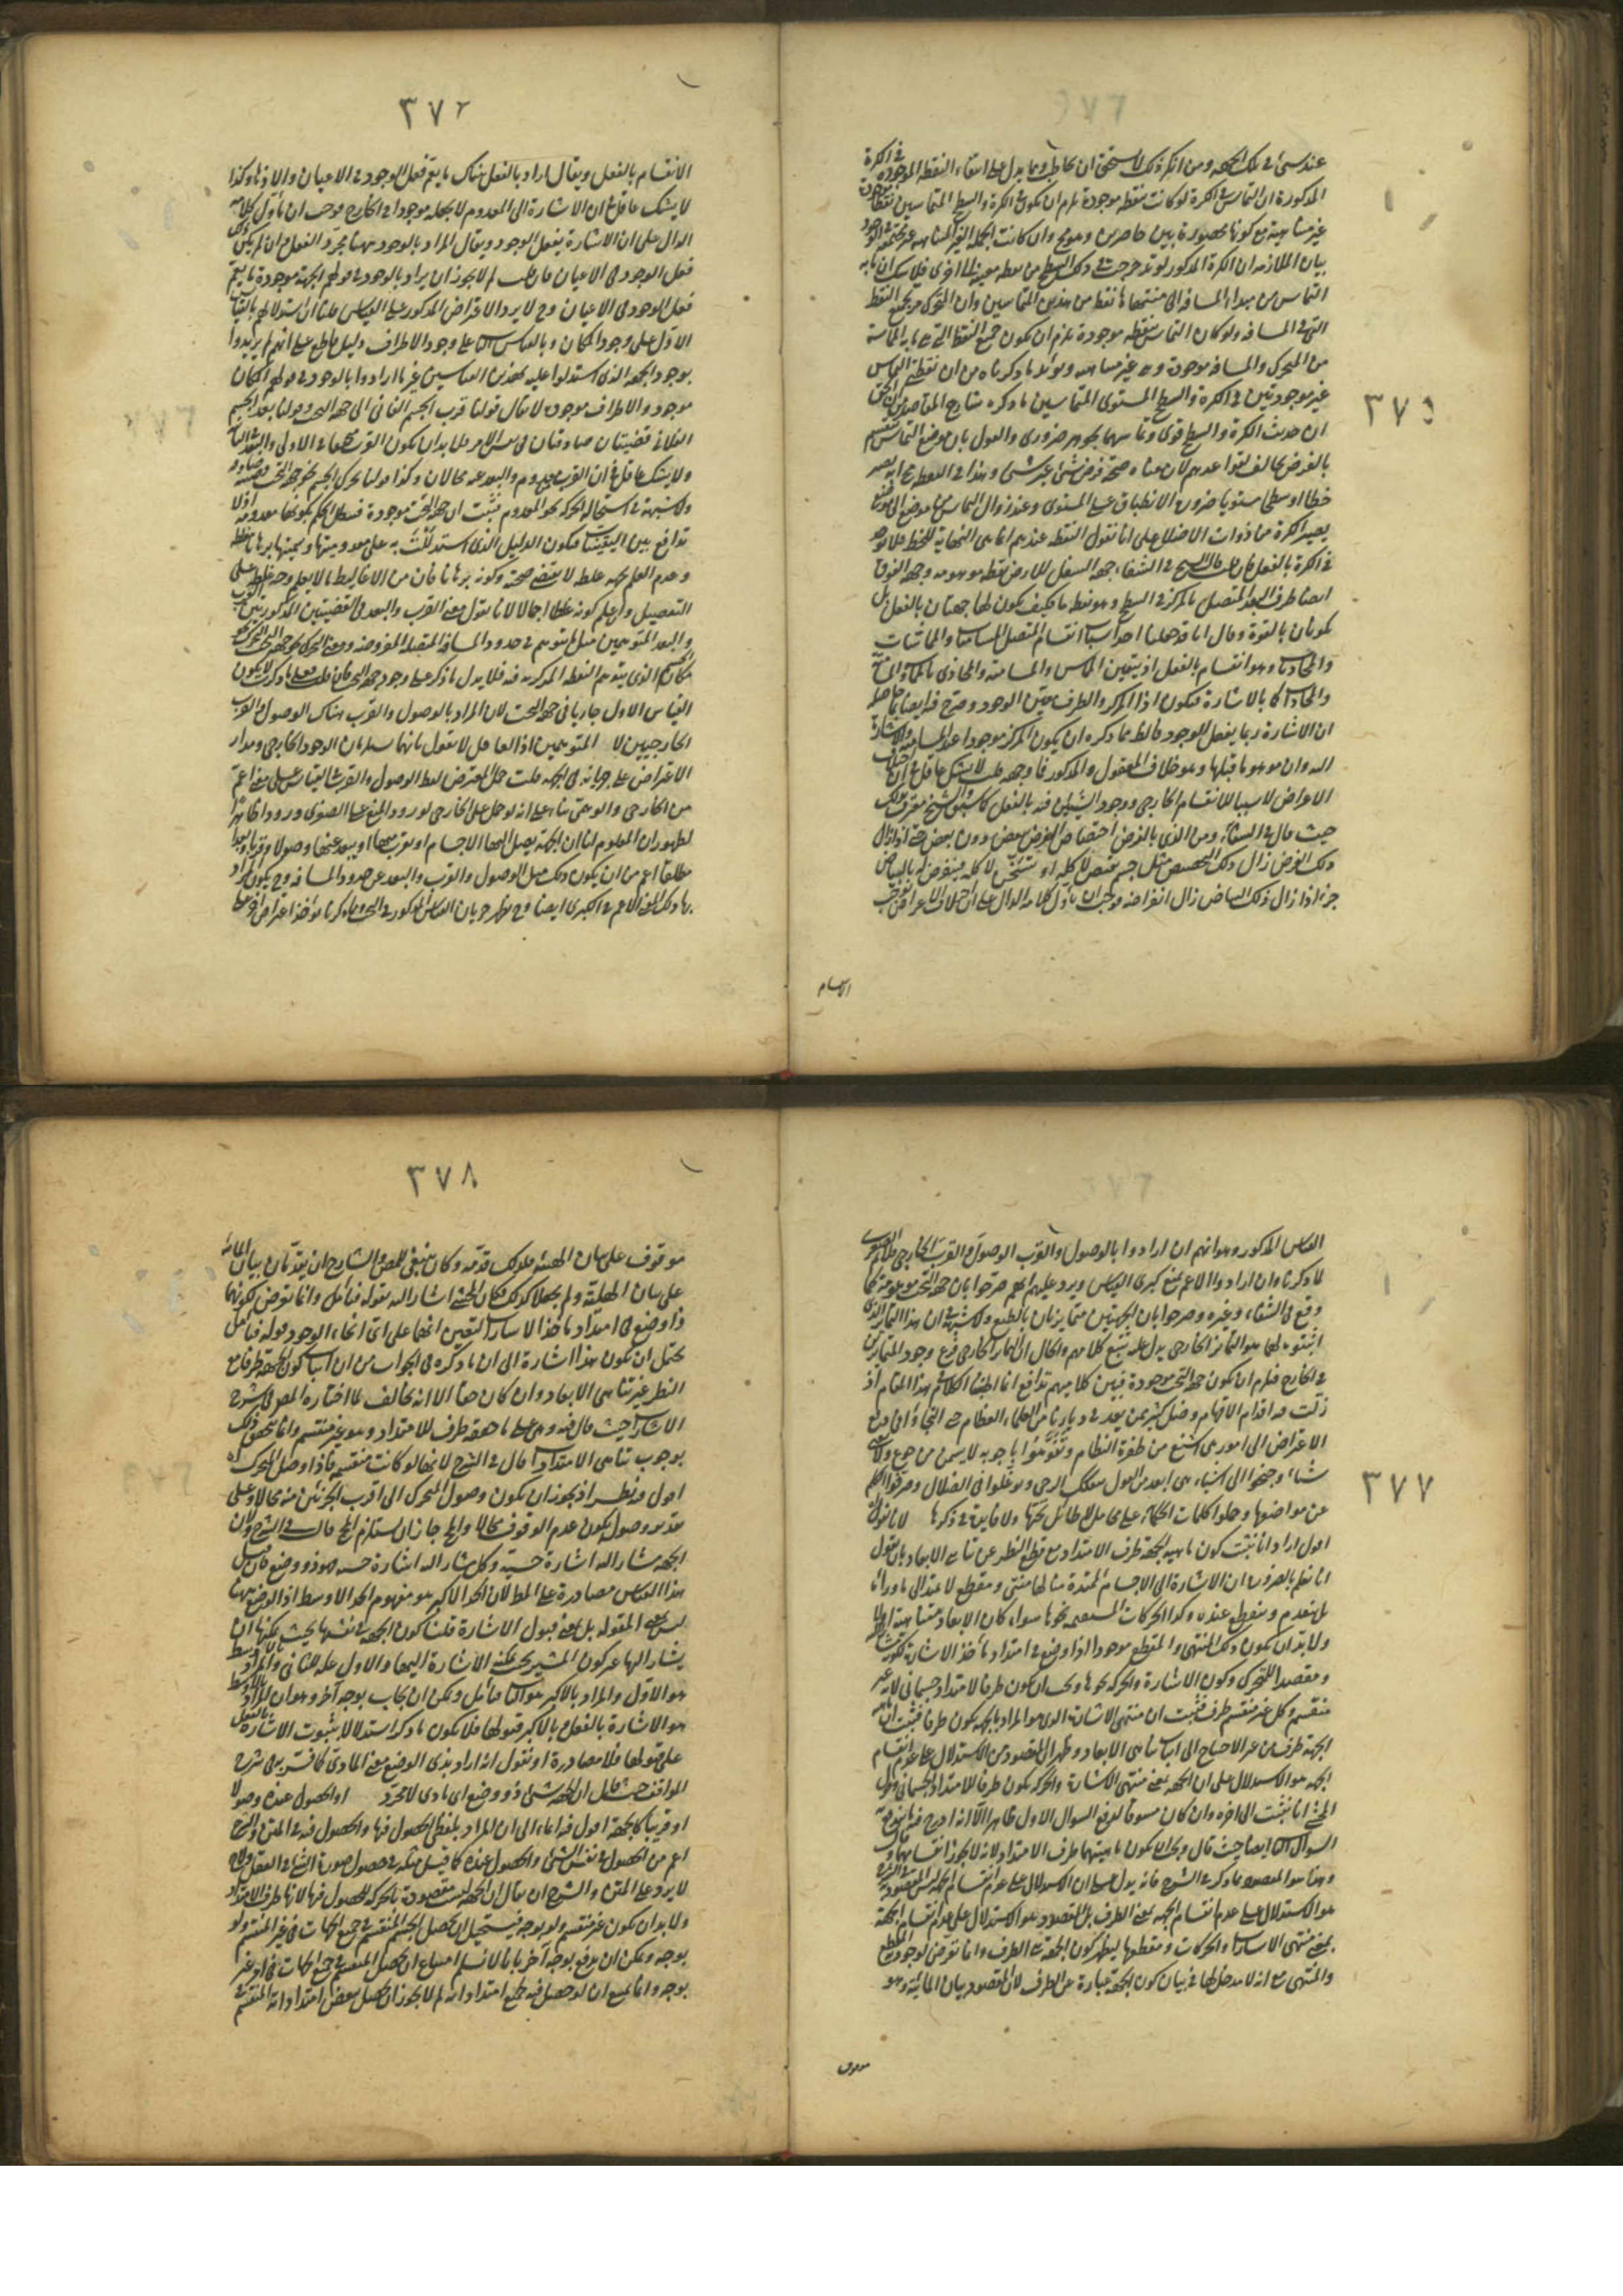 ٣٧٥
عند شئ في تلك الجهة ومن انكر ذلك لا يستحق ان يخاطب ومما يدل على انتفاء النقطة الموجودة في الكرة
المذكورة ان التماس في الكرة لو كانت بنقطة موجودة يلزم ان يكون في الكرة والسطح المتماسين نقط موجودة
غير متناهية مع كونها محصورة بين حاصرين
بيان الملازمة ان الكرة المذكورة لو تدحرجت في ذلك السطح من نقطة معينة الى اخرى فلا شك ان ما به
التماس من مبداء المسافة الى منتهاها نقط من هذين المتماسين وان المتحرك
التي في المسافة ولو كان التماس بنقطة موجودة يلزم ان يكون جميع النقط التي هي ما به المماسة
من المتحرك والمسافة موجودة وهي غير متناهية ويؤيد ما ذكرناه من ان نقطتي التماس
غير موجودتين في الكرة والسطح المستوى المتماسين ما ذكره شارح المقاصد
ان حديث الكرة والسطح قوى وتماسهما بجوهر ضروري والقول بان موضع التماس منقسم
بالفرض مخالف لقواعدهم لان معناه صحة فرض شئ غير شئ
خطا او سطحا مستويا ضرورة الانطباق على المستوى وعند زوال التماس من موضع الى موضع
يصير الكرة من ذوات الاضلاع على انا نقول النقطة عندهم انما هي النهاية للخط فلا توجد
في الكرة بالفعل فان قلت قال الشيخ في الشفاء جهة السفل للارض نقطة موهومة وجهة الفوق
ايضا طرف البعد المتصل بالمركز في السطح وهو نقطة ما فكيف يكون لها جهتان بالفعل بل
يكونان بالقوة وقال انا قد جعلنا احد اسباب انقسام المتصل المسامتات والمماسات
والمحاذيات وهو انقسام بالفعل اذ يتعين المماس والمسامتة والمحاذى
ان الاشارة ربما يفعل الوجود
اليه وان موهوما قبلها وهو خلاف المعقول والمذكور فما وجهه قلت لا يشك عاقل في ان اختلاف
الاعراض لا سببا للانقسام الخارجي ووجود الشيئين فيه بالفعل
حيث قال في الشفاء ومن الذي بالفرض اختصاص العرض ببعض دون بعض حتى اذا زال
ذلك العرض زال ذلك التخصيص مثل جسم
جزء اذا زال ذلك البياض زال افتراضه فوجب ان يأول كلامه الدال على ان اختلاف الاعراض يوجب
الانقسام
٣٧٦
الانقسام بالفعل ويقال اراد بالفعل هناك ما يعم فعل الوجود في الاعيان والاوهام وكذا
لا يشك عاقل في ان الاشارة الى المعدوم لا يجعله موجودا في الخارج فوجب ان يأول كلامه
الدال على ان الاشارة يفعل الوجود ويقال المراد بالوجود ههنا مجرد الفعل وان لم يكن
فعل الوجود في الاعيان فان قلت لم لا يجوز ان يراد بالوجود في قولهم الجهة موجودة ما يعم
فعل الوجود في الاعيان وح لا يرد الاعتراض المذكور على القياس قلنا ان استدلالهم بالقياس
الاول على وجود المكان وبالعكس على وجود الاطراف دليل قاطع على انهم لم يريدوا
بوجود الجهة الذي استدلوا عليه بهذين القياسين غير ما ارادوا بالوجود في قولهم المكان
موجود والاطراف موجودة لا يقال قولنا قرب الجسم الفاني الى جهة التحت وقولنا بعد الجسم
الفلاني قضيتان صادقتان في نفس الامر فلا بد ان يكون القرب متحققا في الاولى والبعد في الثانية
ولا يشك عاقل في ان القرب من المعدوم والبعد عنه محالان وكذا قولنا تحرك الجسم نحو جهة التحت
ولا شبهة في استحالة الحركة نحو المعدوم فثبت ان جهة التحت موجودة فبطل الحكم بكونها معدومة
تدافع بين اليقينيات فيكون الدليل الذي استدللت به على معدوميتها
وعدم العلم بجهة غلطه لا يقتضى صحته وكونه برهانا فان من الاغاليط ما لا يعلم وجه غلطه على
التفصيل وان علم كونه غلطا اجمالا لانا نقول معنى القرب والبعد في القضيتين المذكورتين
والبعد المتوهمين
مكان الجسم الذي يتوهم النقطة المذكورة فيه فلا يدل ما ذكر على وجود جهة التحت
القياس الاول جاريا في جهة التحت لان المراد بالوصول والقرب هناك الوصول والقرب
الخارجيين لا المتوهمين اذ العاقل لا يقول بانهما يستلزمان الوجود الخارجي ومدار
الاعتراض على جريانه في الجهة قلت حمل المعترض لفظ الوصول والقرب في القياس على معنى اعم
من الخارجي والوهمي بناء على انه لو حمل على الخارجي لورد المنع على الصغرى ورودا ظاهرا
لظهور ان المعلوم لنا ان الجهة يصل اليها الاجسام او يقرب منها او يبعد عنها وصولا وقربا وبعدا
مطلقا اعم من ان يكون ذلك مثل الوصول والقرب والبعد عن حدود المسافة وح يكون المراد
بها ذلك المعنى الاعم في الكبرى ايضا وح يظهر جريان القياس المذكور في التحت
٣٧٧
القياس المذكور وهو انهم ان ارادوا بالوصول والقرب الوصول والقرب الخارجي
لما ذكرنا وان ارادوا الاعم نمنع كبرى القياس ويرد عليهم انهم صرحوا بان جهة التحت موهومة كما
وقع في الشفاء وغيره وصرحوا بان الجهتين متمايزتان بالطبع ولا شبهة في ان هذا التمايز الذي
اثبتوه لهما هو التمايز الخارجي يدل عليه تتبع كلامهم والحال ان التمايز الخارجي فرع وجود المتمايزين
في الخارج فيلزم ان يكون جهة التحت موجودة فبين كلاميهم تدافع انما اطنبنا الكلام في هذا المقام اذ
زلت فيه اقدام الافهام وضل كثير ممن يعد في ديارنا من العلماء العظام حتى التجأوا في دفع
الاعتراض الى امور هي اشنع من طفرة النظام وتفوهوا باجوبة لا يسمن من جوع ولا
شتاء وجنحوا الى اشياء هي ابعد من القول بتفكك الرحى وتوغلوا في الضلال وحرفوا الكلم
عن مواضعها وحملوا كلمات الحكماء على محامل لا طائل تحتها ولا فائدة في ذكرها
اقول اراد انا نثبت كون ماهية الجهة طرف الامتداد مع قطع النظر عن تناهى الابعاد بان نقول
انا نعلم بالضرورة ان الاشارة الى الاجسام الممتدة مثلا لها منتهى ومقطع لا يمتد الى ما وراءها
بل ينعدم وينقطع عنده وكذا الحركات المستقيمة نحوها سواء كان الابعاد متناهية او لا
ولا بد ان يكون ذلك المنتهى والمقطع موجودا ذا وضع في امتداد مأخذ الاشارة
ومقصدا للمتحرك وكون الاشارة والحركة نحوها وجب ان يكون طرفا لامتداد جسماني لانه غير
منقسم وكل غير منقسم طرف فثبت ان منتهى الاشارة الذي هو المراد بالجهة يكون طرفا
الجهة طرف من غير الاحتياج الى اثبات تناهى الابعاد وظهر ان المقصود من الاستدلال على عدم انقسام
الجهة هو الاستدلال على ان الجهة بمعنى منتهى الاشارة والحركة يكون طرفا للامتداد الجسماني
المحشى انا نثبت الى اخره وان كان مسوقا لدفع السؤال الاول ظاهرا الا انه ادرج فيه
السؤال الثاني ايضا حيث قال وجب ان يكون ماهيتها طرف الامتداد لانه لا يجوز انقسامها
وهذا هو المقصود
هو الاستدلال على عدم انقسام الجهة بمعنى الطرف بل المقصود هو الاستدلال على عدم انقسام الجهة
بمعنى منتهى الاشارات والحركات ومقطعها ليظهر كون الجهة هي الطرف وانما تعرض لوجود المقطع
والمنتهى مع انه لا مدخل لها في بيان كون الجهة عبارة عن الطرف لان المقصود بيان المائية وهو
موقوف
٣٧٨
موقوف على بيان الهلية فلذلك قدمه وكان ينبغي للمص والشارح ان يقدمان بيان المائية
على بيان الهلية ولم يجعلا كذلك فكان المحشى اشار اليه بقوله فتأمل وانما تعرض لكونها
ذا وضع في امتداد مأخذ الاشارات لتعيين انها على اى انحاء الوجود قوله فتأمل
يحتمل ان يكون هذا اشارة الى ان ما ذكره في الجواب من ان اثبات كون الجهة طرفا مع
النظر عن تناهى الابعاد وان كان حقا الا انه يخالف لما اختاره المص في شرح
الاشارات حيث قال فيه وهي على ما حققه طرف للامتداد وهو غير منقسم وانما يتحقق ذلك
بوجوب تناهى الامتدادات قال في الشرح لانها لو كانت منقسمة فاذا وصل المتحرك اه
اقول فيه نظر اذ يجوز ان يكون وصول المتحرك الى اقرب الجزئين منه محالا وعلى
تقدير وصوله يكون عدم الوقوف محالا والمحال جاز ان يستلزم المحال قال في الشرح ولان
الجهة مشار اليه اشارة حسية وكل مشار اليه اشارة حسية فهو ذو وضع فان قيل
هذا القياس مصادرة على المطلوب لان الحد الاكبر هو مفهوم الحد الاوسط اذ الوضع ههنا
ليس بمعنى المقولة بل بمعنى قبول الاشارة قلنا كون الجهة في نفسها بحيث يمكنها ان
يشار اليها غير كون المشير بحيث يمكنه الاشارة اليها والاول علة للثاني والمراد بالاوسط
هو الاول والمراد بالاكبر هو الثاني فتأمل ويمكن ان يجاب بوجه آخر وهو ان المراد بالاوسط
هو الاشارة بالفعل وبالاكبر قبولها فلا يكون ما ذكر استدلالا بثبوت الاشارة بالفعل
على قبولها فلا مصادرة او نقول انه اراد بذى الوضع معنى المادى كما فسر به في شرح
المواقف حيث قال ان الجهة شئ ذو وضع اى مادى لا مجرد او الحصول عنده وصولا
او قريبا كالجهة اقول فيه ايماء الى ان المراد بلفظ الحصول فيها والحصول فيه في المتن والشرح
اعم من الحصول في نفس الشئ والحصول عنده كما قيل مثله في حصول صورة الشئ في العقل
لا يرد على المتن والشرح ان يقال ان الجهة ليست مقصودة بالحركة للحصول فيها لانها طرف الامتداد
ولا بد ان يكون غير منقسم ولو بوجه فيستحيل ان يحصل الجسم المنقسم في جميع الجهات في غير المنقسم ولو
بوجه ويمكن ان يدفع بوجه آخر بانا لا نسلم امتناع ان يحصل المنقسم في جميع الجهات في امر غير
بوجه وانما يمتنع ان لو حصل فيه جميع امتداداته لم لا يجوز ان يحصل بعض امتداداته المنقسم